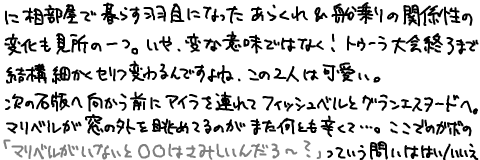 に相部屋で暮らす羽目になった あらくれ&船乗りの関係性の
変化も見所の一つ。いや、変な意味ではなく! トゥーラ大会終了まで
結構細かくセリフ変わるんですよね、この2人は可愛い。
次の石版へ向かう前にアイラを連れてフィッシュベルとグランエスタードへ。
マリベルが窓の外を眺めてるのがまた何とも辛くて…。ここでのガボの
「マリベルがいないと〇〇はさみしいんだろ〜?」っていう問いにはい/いいえ